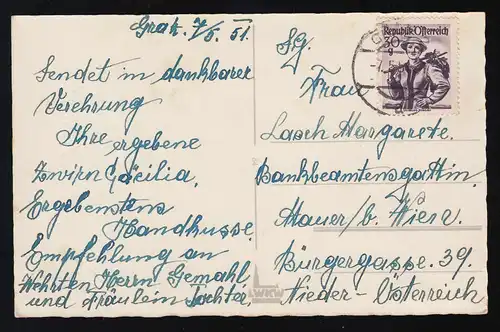 Graz, 7/5. 51.
Sendet in dankbarer
Verehrung
Ihre ergebene
Zwirn Cäcilia.
Ergebenstens
Handkusse.
Empfehlung an
Wehrten Herrn Gemahl
und Fräulein Tochter.
Republik Österreich
30
Sg.
Frau
Lasch Margarete.
Bankbeamtensgattin.
Mauer/b. Wien.
Bürgergasse. 39.
Nieder-Österreich
WKW